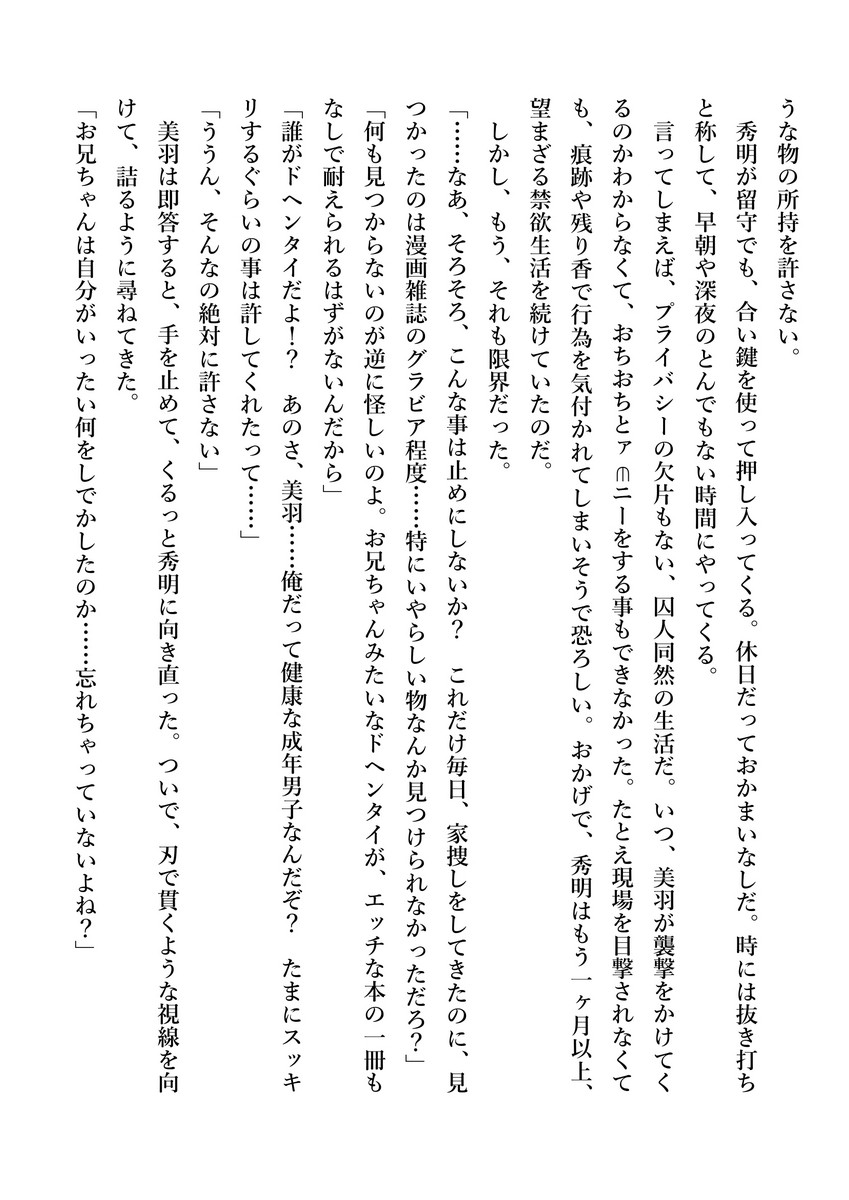 うな物の所持を許さない。
　秀明が留守でも、合い鍵を使って押し入ってくる。休日だっておかまいなしだ。時には抜き打ち
と称して、早朝や深夜のとんでもない時間にやってくる。
　言ってしまえば、プライバシーの欠片もない、囚人同然の生活だ。いつ、美羽が襲撃をかけてく
るのかわからなくて、おちおちとァ⋒ニーをする事もできなかった。たとえ現場を目撃されなくて
も、痕跡や残り香で行為を気付かれてしまいそうで恐ろしい。おかげで、秀明はもう一ヶ月以上、
望まざる禁欲生活を続けていたのだ。
　しかし、もう、それも限界だった。
「……なあ、そろそろ、こんな事は止めにしないか？　これだけ毎日、家捜しをしてきたのに、見
つかったのは漫画雑誌のグラビア程度……特にいやらしい物なんか見つけられなかっただろ？」
「何も見つからないのが逆に怪しいのよ。お兄ちゃんみたいなドヘンタイが、エッチな本の一冊も
なしで耐えられるはずがないんだから」
「誰がドヘンタイだよ！？　あのさ、美羽……俺だって健康な成年男子なんだぞ？　たまにスッキ
リするぐらいの事は許してくれたって……」
「ううん、そんなの絶対に許さない」
　美羽は即答すると、手を止めて、くるっと秀明に向き直った。ついで、刃で貫くような視線を向
けて、詰るように尋ねてきた。
「お兄ちゃんは自分がいったい何をしでかしたのか……忘れちゃっていないよね？」